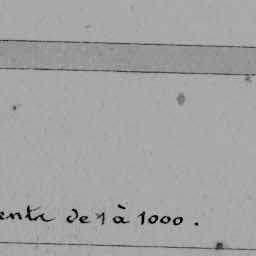 ente de 1 à 1000.